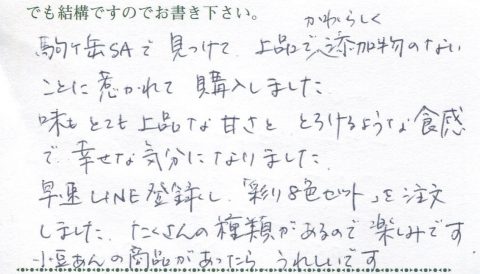 でも結構ですのでお書き下さい。
かわいらしく
駒ヶ岳SAで見つけて、上品で、添加物のない
ことに惹かれて購入しました。
味もとても上品な甘さと、とろけるような食感
で幸せな気分になりました。
早速LINE登録し、「彩り8色セット」を注文
しました。たくさんの種類があるので楽しみです
小豆あんの商品があったらうれしいです